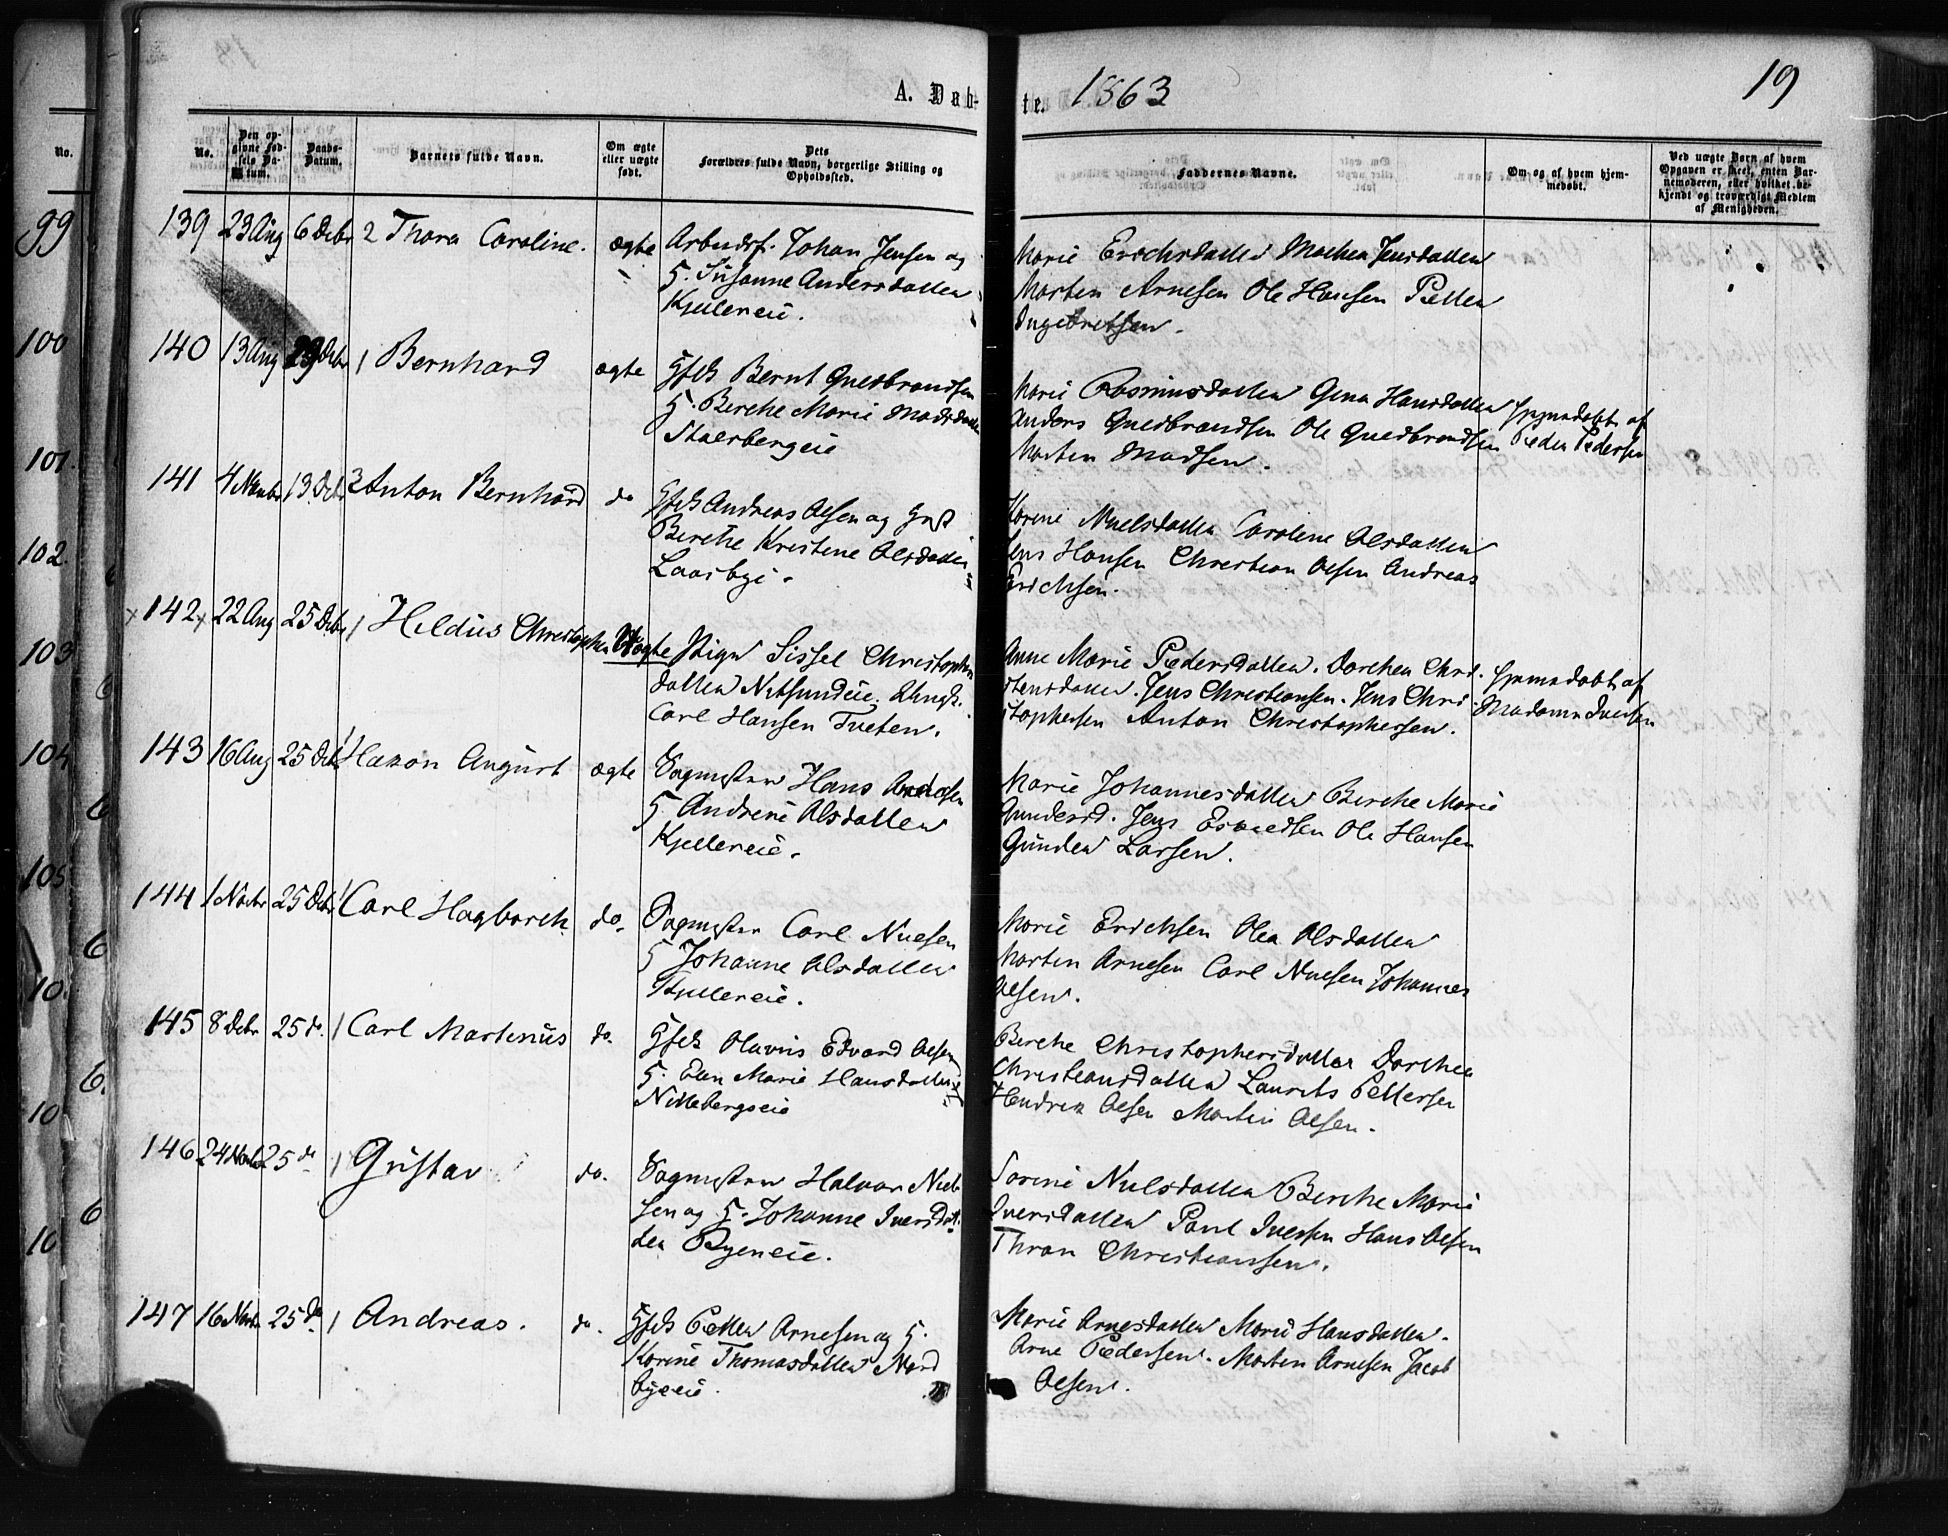 A. Døb-
te. 1863
19
No.
No.
Den op-
givne Fød-
sels Da-
tum.
Daabs-
Datum.
Barnets fulde Navn.
Om ægte
eller uægte
født.
Dets
Forældres fulde Navn, borgerlige Stilling og
Opholdssted.
Faddernes Navne.
Om og af hvem hjem-
medøbt.
Ved uægte Børn af hvem
Opgaven er skeet, enten Bar-
nemoderen, eller hvilket be-
kjendt og troværdigt Medlem
af Menigheden.
99
100
101.
102.
103
104
105
10
10
10
139 23 Aug 6 Decbr 2 Thora Caroline. ægte
Arbeidsf. Johan Jensen og
H. Susanne Andersdatter
Kjellereie.
Marie Erichsdatter Mathea Jensdatter
Morten Arnesen Ole Hansen Petter
Ingebretsen.
140 13 Aug Decbr 1 Bernhard ægte
Gfsk Bernt Guldbrandsen
H. Berthe Marie Madsdatter
Stalsbergeie
Marie Rasmusdatter Gina Hansdatter
Anders Guldbrandsen Ole Guldbrandsen
Morten Madsen.
Hjemdøbt af
Peder Pedersen
141 4 Novbr 13 Decbr 3 Anton Bernhard do
Gfsk Andreas Olsen og
Berthe Kristine Olsdatter
Laasbye.
Karine Nielsdatter Caroline Olsdatter
Jens Hansen Christian Olsen Andreas
Erichsen.
142 22 Aug 25 Decbr 1 Hildus Christopher Uægte
Pige Sissel Christophers
datter Nitsundeie. Ungk.
Carl Hansen Tveten.
Anne Marie Pedersdatter. Dorthea Chri
stensdatter. Jens Christiansen. Jens Chri
stophersen Anton Christophersen.
Hjemmedøbt af
Madame Iversen
143 16 Aug 25 Decbr 1 Hakon August ægte
Sagmester Hans
H Andrine Olsdatter
Kjellereie.
Marie Johannesdatter Berthe Marie
Gundersd. Jens Ole Hansen
Gunder Larsen.
144 1 Novbr 25 Decbr 1 Carl Hagbarth. do.
Sagmester Carl Nielsen
H Johanne Olsdatter
Kjellereie.
Marie Erichsen Olea Olsdatter
Morten Arnesen Carl Nielsen Johannes
Olsen.
145 8 Decbr 25 do. 1 Carl Martinus do.
Gfsk Olavus Edvard Olsen
H. Elen Marie Hansdatter
Nittebergseie
Berthe Christophersdatter Dorthea
Christiansdatter Laurits Pettersen
Hendrik Olsen Martin Olsen.
146 24 Novbr 25 do 1 Gustav do.
Sagmester Halvor Niel
sen og H. Johanne Iversdat
ter Ryeneie.
Sorine Nielsdatter Berthe Marie
Iversdatter Paul Iversen Hans Olsen
Thron Christiansen.
147 16 Novbr 25 do 1 Andreas. do.
Gfsk Petter Arnesen og H.
Karine Thomasdatter Nord
byeeie.
Marie Arnesdatter Marie Hansdatter.
Arne Pedersen. Morten Arnesen Jacob
Olsen.